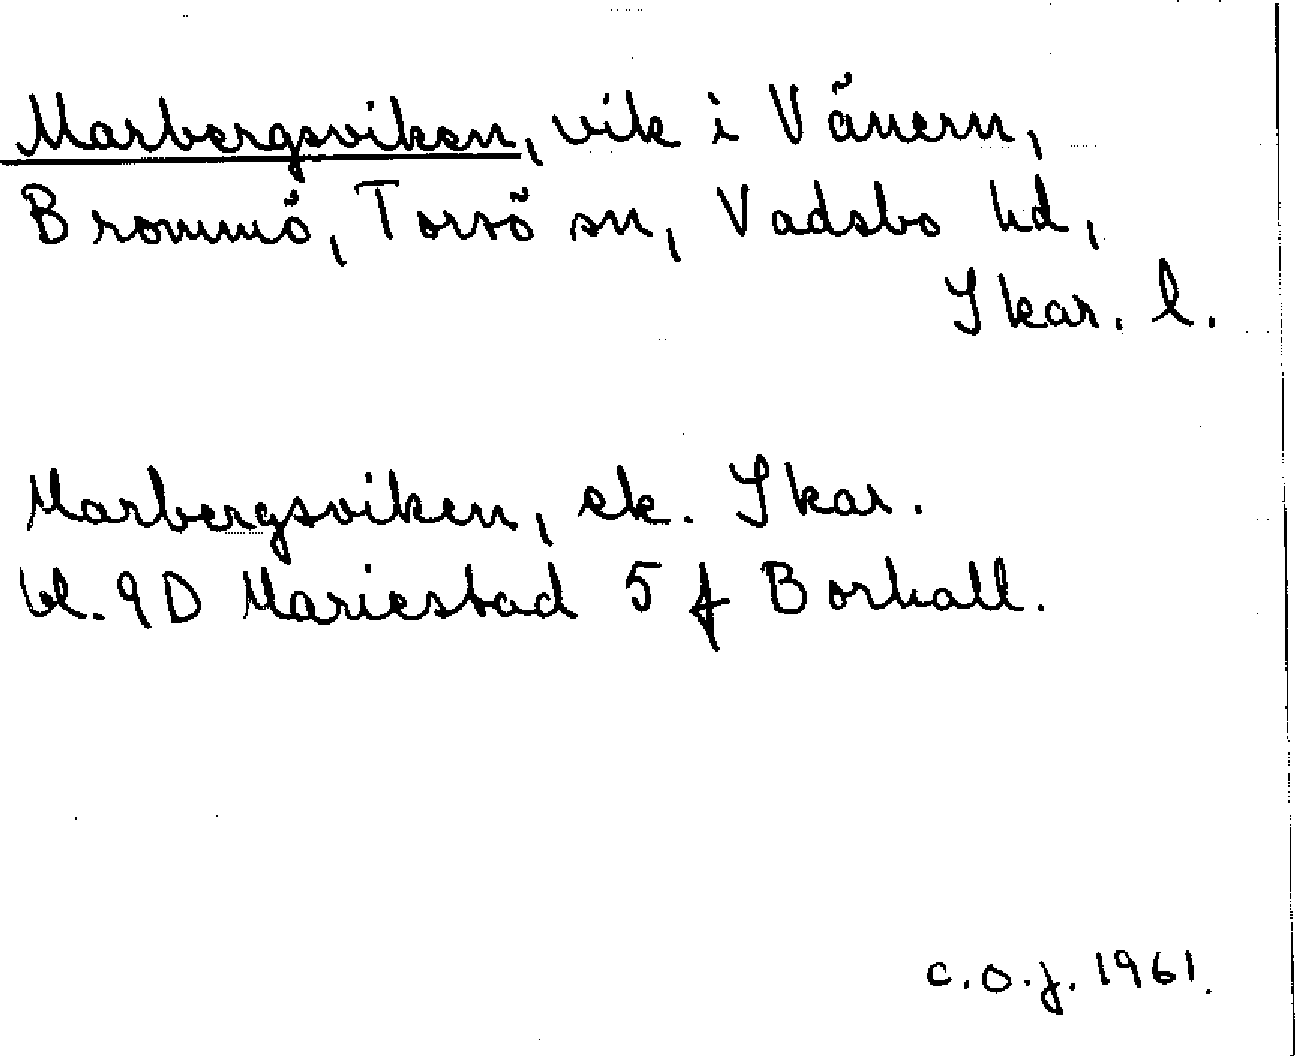 Marbergsviken, vik i Vänern,
Brommö, Torsö sn, Vadsbo hd,
Skar. l.
Marbergsviken, ek. Skar.
bl. 9D Mariestad 5 f Borhall.
C.O.J. 1961.